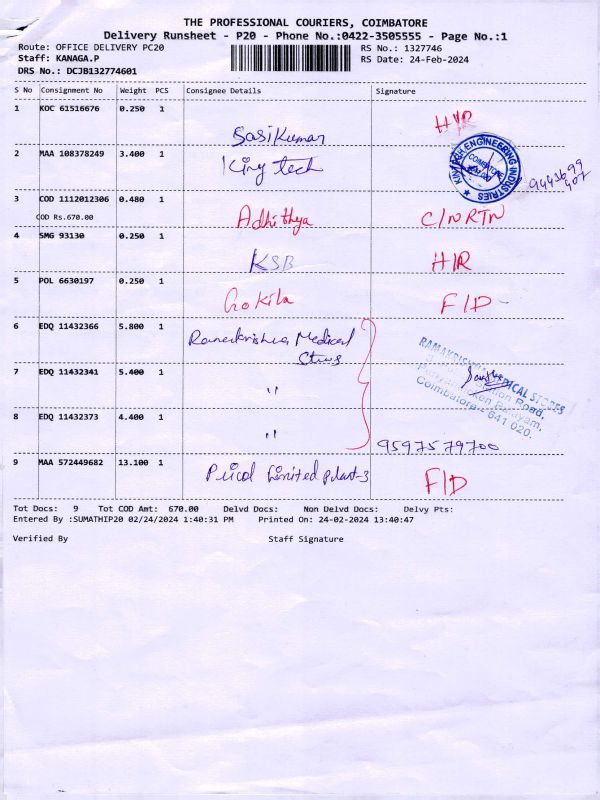 THE PROFESSIONAL COURIERS, COIMBATORE
Delivery Runsheet - P20 - Phone No.:0422-3505555 - Page No.:1
Route: OFFICE DELIVERY PC20
RS No.: 1327746
Staff: KANAGA.P
RS Date: 24-Feb-2024
DRS No.: DCJB132774601
S No Consignment No Weight PCS Consignee Details Signature
1 KOC 61516676 0.250 1
SasiKumar
2 MAA 108378249 3.400 1 King tech
ENGINEERING INDUSTRIES
COIMBATORE
9443699
407
3 COD 1112012306 0.480 1
COD Rs.670.00 Adhithya C/NRTN
4 SMG 93130 0.250 1
KSB H/R
5 POL 6630197 0.250 1
Gokila F/D
6 EDQ 11432366 5.800 1 Medical
RAMAKRISHNA MEDICAL STORES
7 EDQ 11432341 5.400 1
"
Road,
Coimbatore - 641 020.
8 EDQ 11432373 4.400 1
"
9597579700
9 MAA 572449682 13.100 1 Pricol Limited plant-3
F/D
Tot Docs: 9 Tot COD Amt: 670.00 Delvd Docs: Non Delvd Docs: Delvy Pts:
Entered By :SUMATHIP20 02/24/2024 1:40:31 PM Printed On: 24-02-2024 13:40:47
Verified By Staff Signature